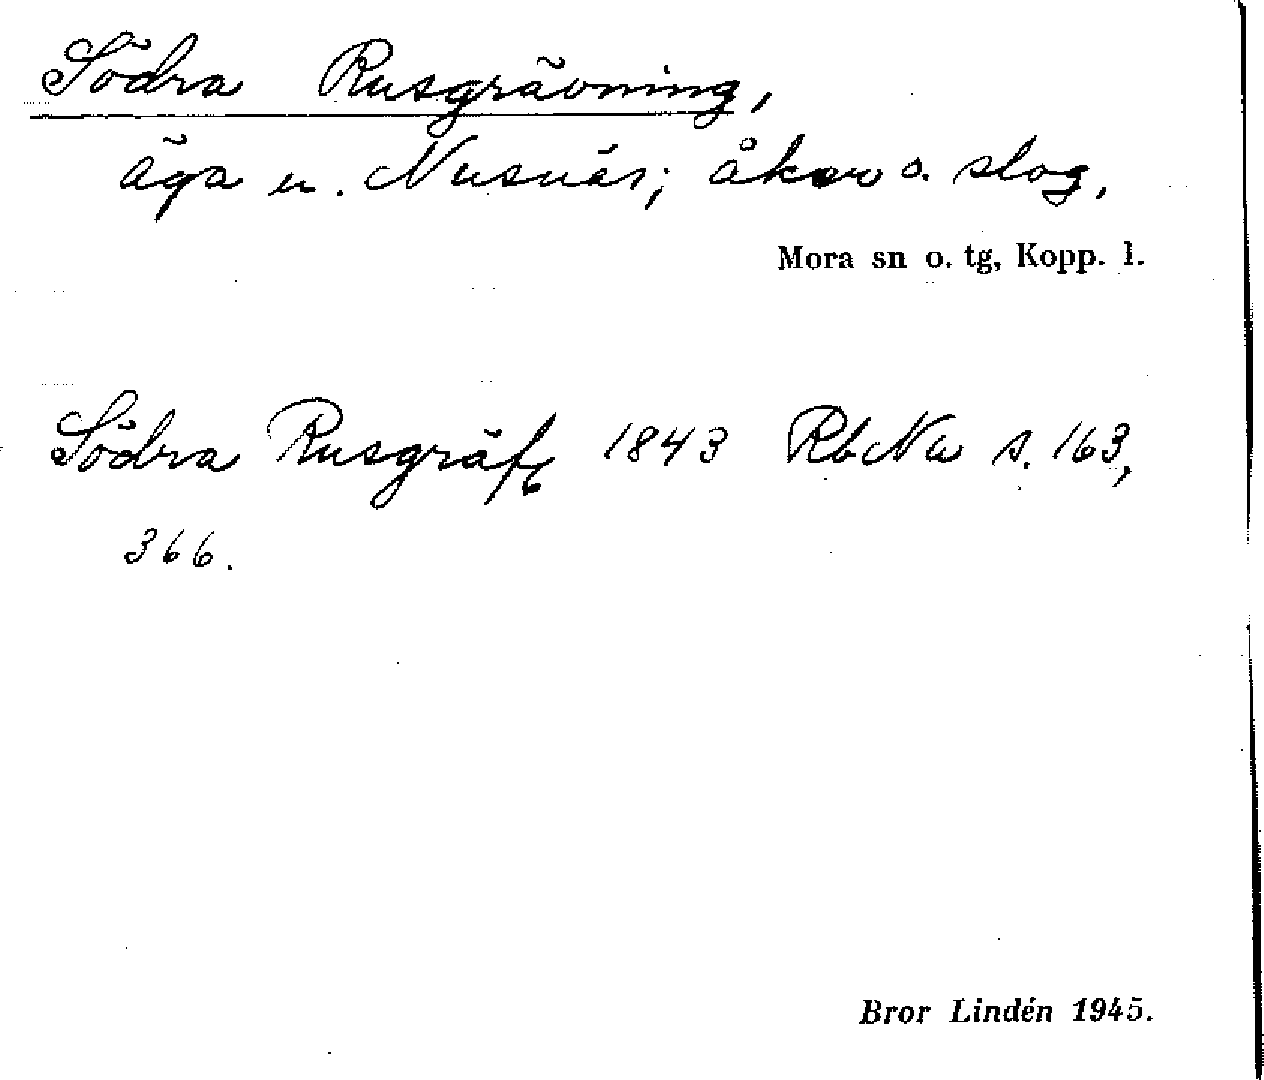 Södra Rusgrävning,
äga u. Nusnäs; åker o. slog,
Mora sn o. tg, Kopp. l.
Södra Rusgräfg 1843 RbNa s. 163,
366.
Bror Lindén 1945.